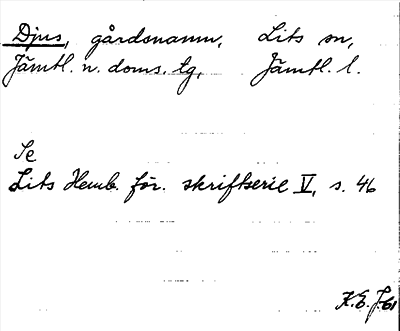 Djus, gårdsnamn, Lits sn,
Jämtl. n. doms. tg, Jämtl. l.
Se
Lits Hemb. för. skriftserie V, s. 46
K.E.J. 61